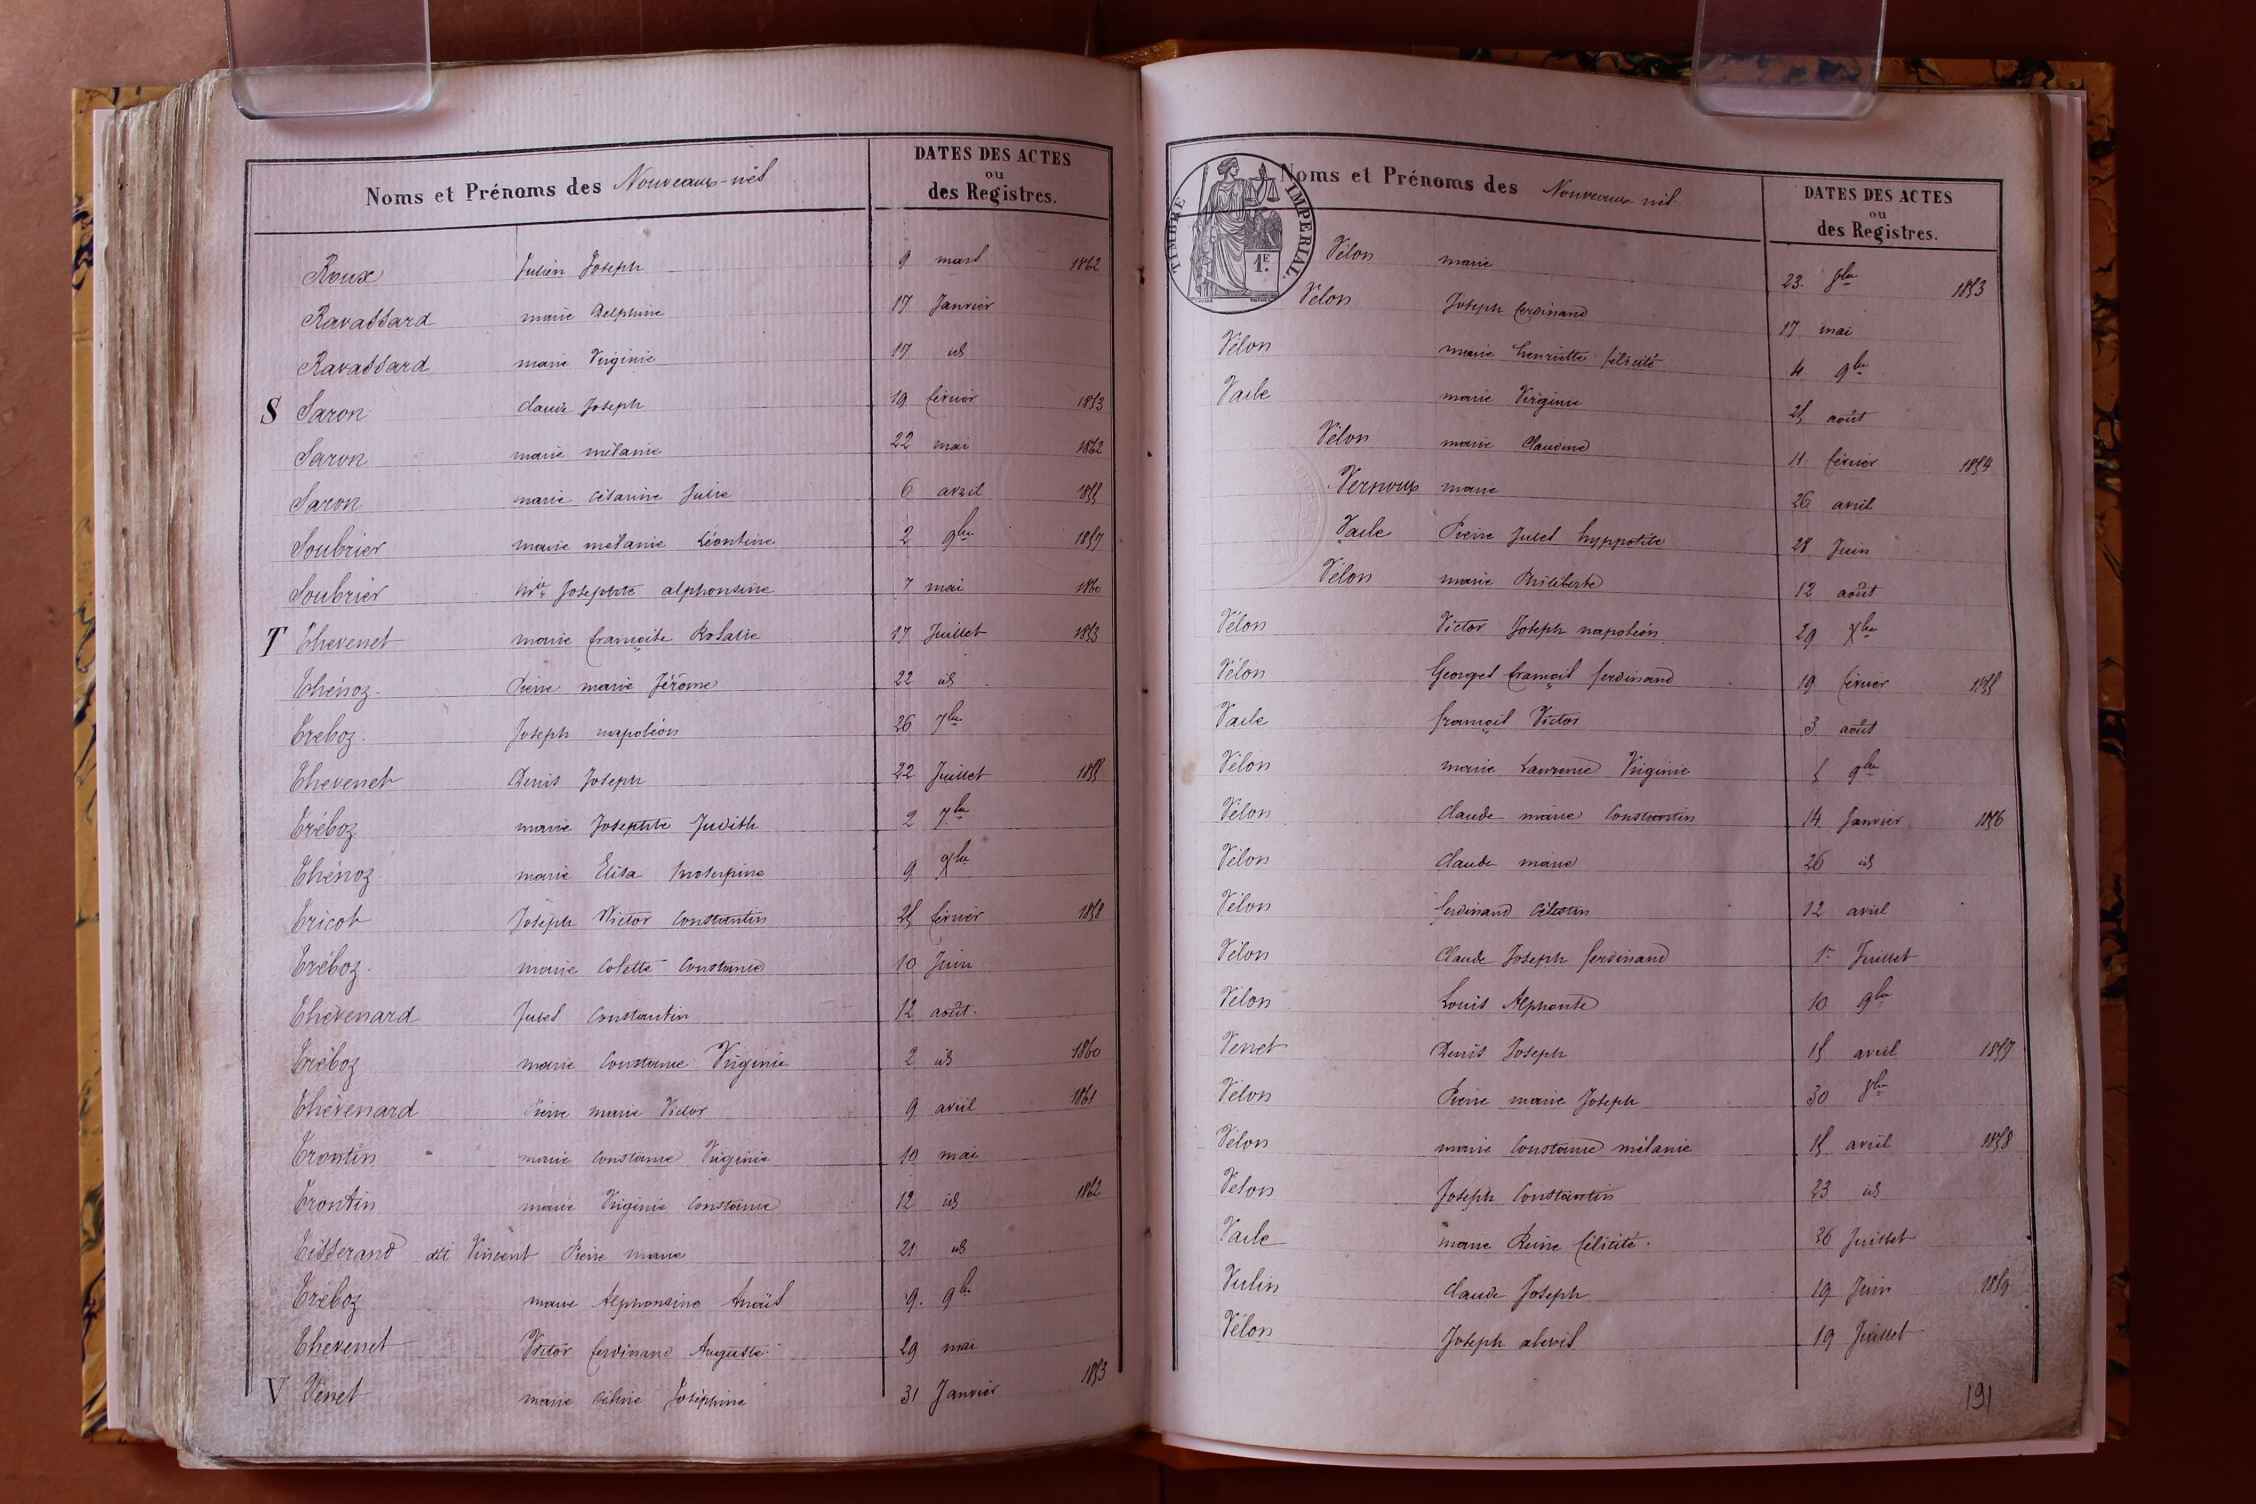 Noms et Prénoms des Nouveaux-nés
DATES DES ACTES
ou
des Registres.
Roux Julien Joseph 9 mars 1862
Ravassard marie Delphine 17 Janvier
Ravassard marie Virginie 17 id
S Saron Claude Joseph 19 février 1853
Saron marie mélanie 22 mai 1862
Saron marie Césarine Julie 6 avril 1855
Soubrier marie mélanie Léontine 2 9bre 1857
Soubrier Mie Josephte alphonsine 7 mai 1860
T Thevenet marie françoise Rosalie 17 Juillet 1853
Thénoz Pierre marie Jérôme 22 id
Treboz Joseph napoléon 26 7bre
Thevenet Denis Joseph 22 Juillet 1855
Tréboz marie Josephte Judith 2 7bre
Thénoz marie Elisa 9 Xbre
Tricot Joseph Victor Constantin 25 février 1858
Tréboz marie Colette Constance 10 Juin
Thévenard Jules Constantin 12 août
Tréboz marie Constance Virginie 2 id 1860
Thévenard Pierre marie Victor 9 avril 1861
Trontin marie Constance Virginie 10 mai
Trontin marie Virginie Constance 12 id 1862
Tisserand dit Vincent Pierre marie 21 id
Tréboz marie Alphonsine Anaïs 9 9bre
Thevenet Victor ferdinand Auguste 29 mai
V Vénet marie Céline Joséphine 31 Janvier 1853
TIMBRE IMPERIAL
1.E
Noms et Prénoms des Nouveaux nés
DATES DES ACTES
ou
des Registres.
Vélon marie 23 8bre 1853
Vélon Joseph ferdinand 17 mai
Vélon marie henriette félicité 4 9bre
Varle marie Virginie 25 août
Vélon marie Claudine 11 février 1854
Vernoux marie 26 avril
Varle Pierre Jules hyppolite 28 Juin
Vélon marie Philiberte 12 août
Vélon Victor Joseph napoléon 29 Xbre
Vélon Georges françois ferdinand 19 février 1855
Varle françois Victor 3 août
Vélon marie Laurence Virginie 5 9bre
Vélon Claude marie Constantin 14 Janvier 1856
Vélon Claude marie 26 id
Vélon ferdinand Célestin 12 avril
Vélon Claude Joseph ferdinand 1er Juillet
Vélon Louis Alphonse 10 9bre
Venet Denis Joseph 15 avril 1857
Vélon Pierre marie Joseph 30 8bre
Vélon marie Constance mélanie 15 avril 1858
Vélon Joseph Constantin 23 id
Varle marie Reine félicité. 26 Juillet
Vulin Claude Joseph 19 Juin 1859
Vélon Joseph alexis 19 Juillet
191